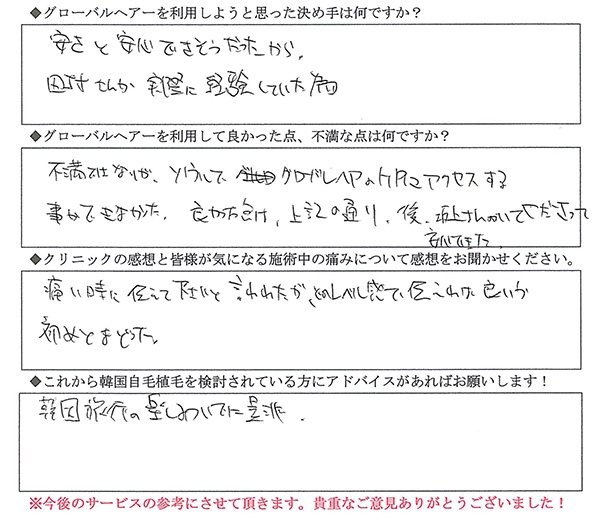 ◆グローバルヘアーを利用しようと思った決め手は何ですか？
安さと安心できそうだったから。
さんが実際に経験していた
◆グローバルヘアーを利用して良かった点、不満な点は何ですか？
不満ではないが、ソウルでグローバルヘアのHPにアクセスする
事ができなかった。良かった点は、上記の通り、後、さんがいてくださって
安心できた。
◆クリニックの感想と皆様が気になる施術中の痛みについて感想をお聞かせください。
痛い時に伝えて下さいと言われたが、どのレベル感で伝えれば良いか
初めとまどった。
◆これから韓国自毛植毛を検討されている方にアドバイスがあればお願いします！
韓国旅行の楽しみついでに是非。
※今後のサービスの参考にさせて頂きます。貴重なご意見ありがとうございました！